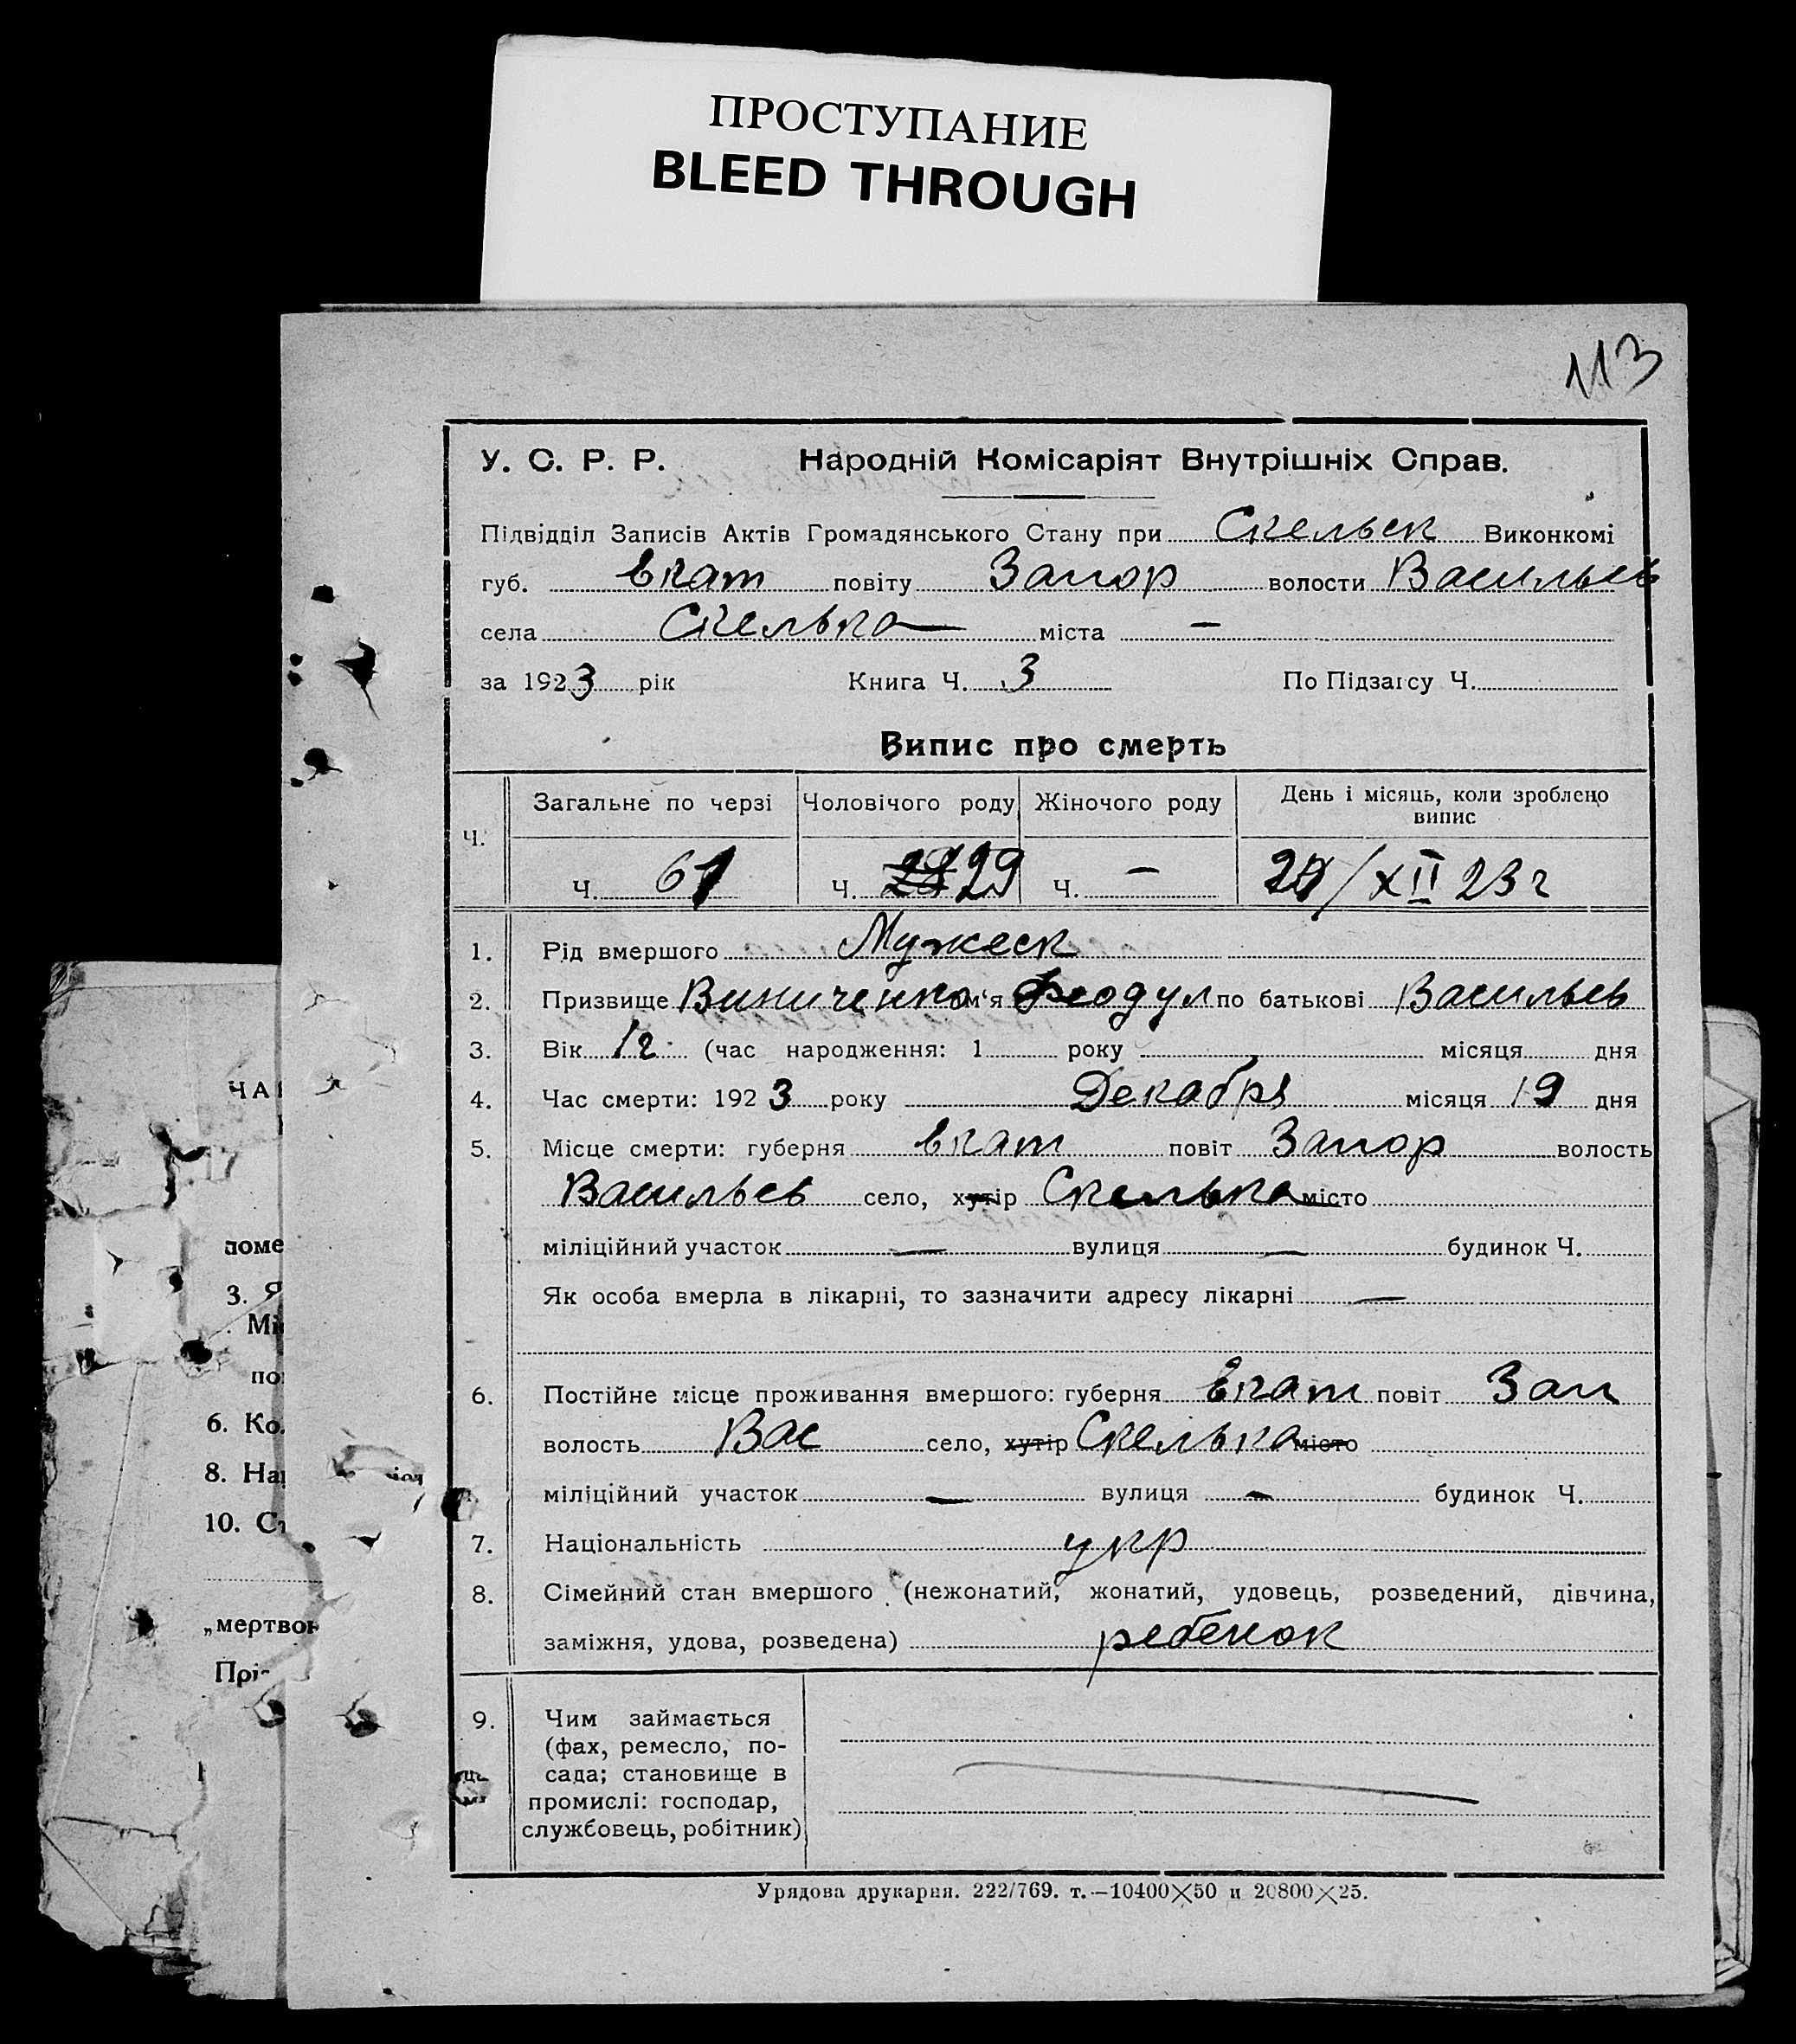 ПРОСТУПАНИЕ
BLEED THROUGH
113
У. С. Р. Р. Народній Комісаріят Внутрішніх Справ.
Підвідділ Записів Актів Громадянського Стану при Скельск Виконкомі
губ. Екат повіту Запор волости Васильев
села Скелька міста —
за 1923 рік Книга Ч. 3 По Підзагсу Ч.
Випис про смерть
Ч. Загальне по черзі Чоловічого роду Жіночого роду День і місяць, коли зроблено
випис
Ч. 61 Ч. 29 Ч. — /XII 23 г
1. Рід вмершого Мужеск
2. Призвище Виниченко Ім'я Феодул по батькові Васильев
3. Вік 1 г. (час народження: 1 року місяця дня
4. Час смерти: 1923 року Декабря місяця 19 дня
5. Місце смерти: губерня Екат повіт Запор волость
Васильев село, хутір Скелька місто
міліційний участок — вулиця — будинок Ч.
Як особа вмерла в лікарні, то зазначити адресу лікарні —
6. Постійне місце проживання вмершого: губерня Екат повіт Зап
волость Вас село, хутір Скелька місто
міліційний участок — вулиця — будинок Ч.
7. Національність укр
8. Сімейний стан вмершого (нежонатий, жонатий, удовець, розведений, дівчина,
заміжня, удова, розведена) ребенок
9. Чим займається
(фах, ремесло, по-
сада; становище в
промислі: господар,
службовець, робітник)
Урядова друкарня. 222/769. т.—10400×50 и 20800×25.
ЧА
поме
3. Я
Мі
по
6. Ко
8. На
10. Ст
„мертво
Прі